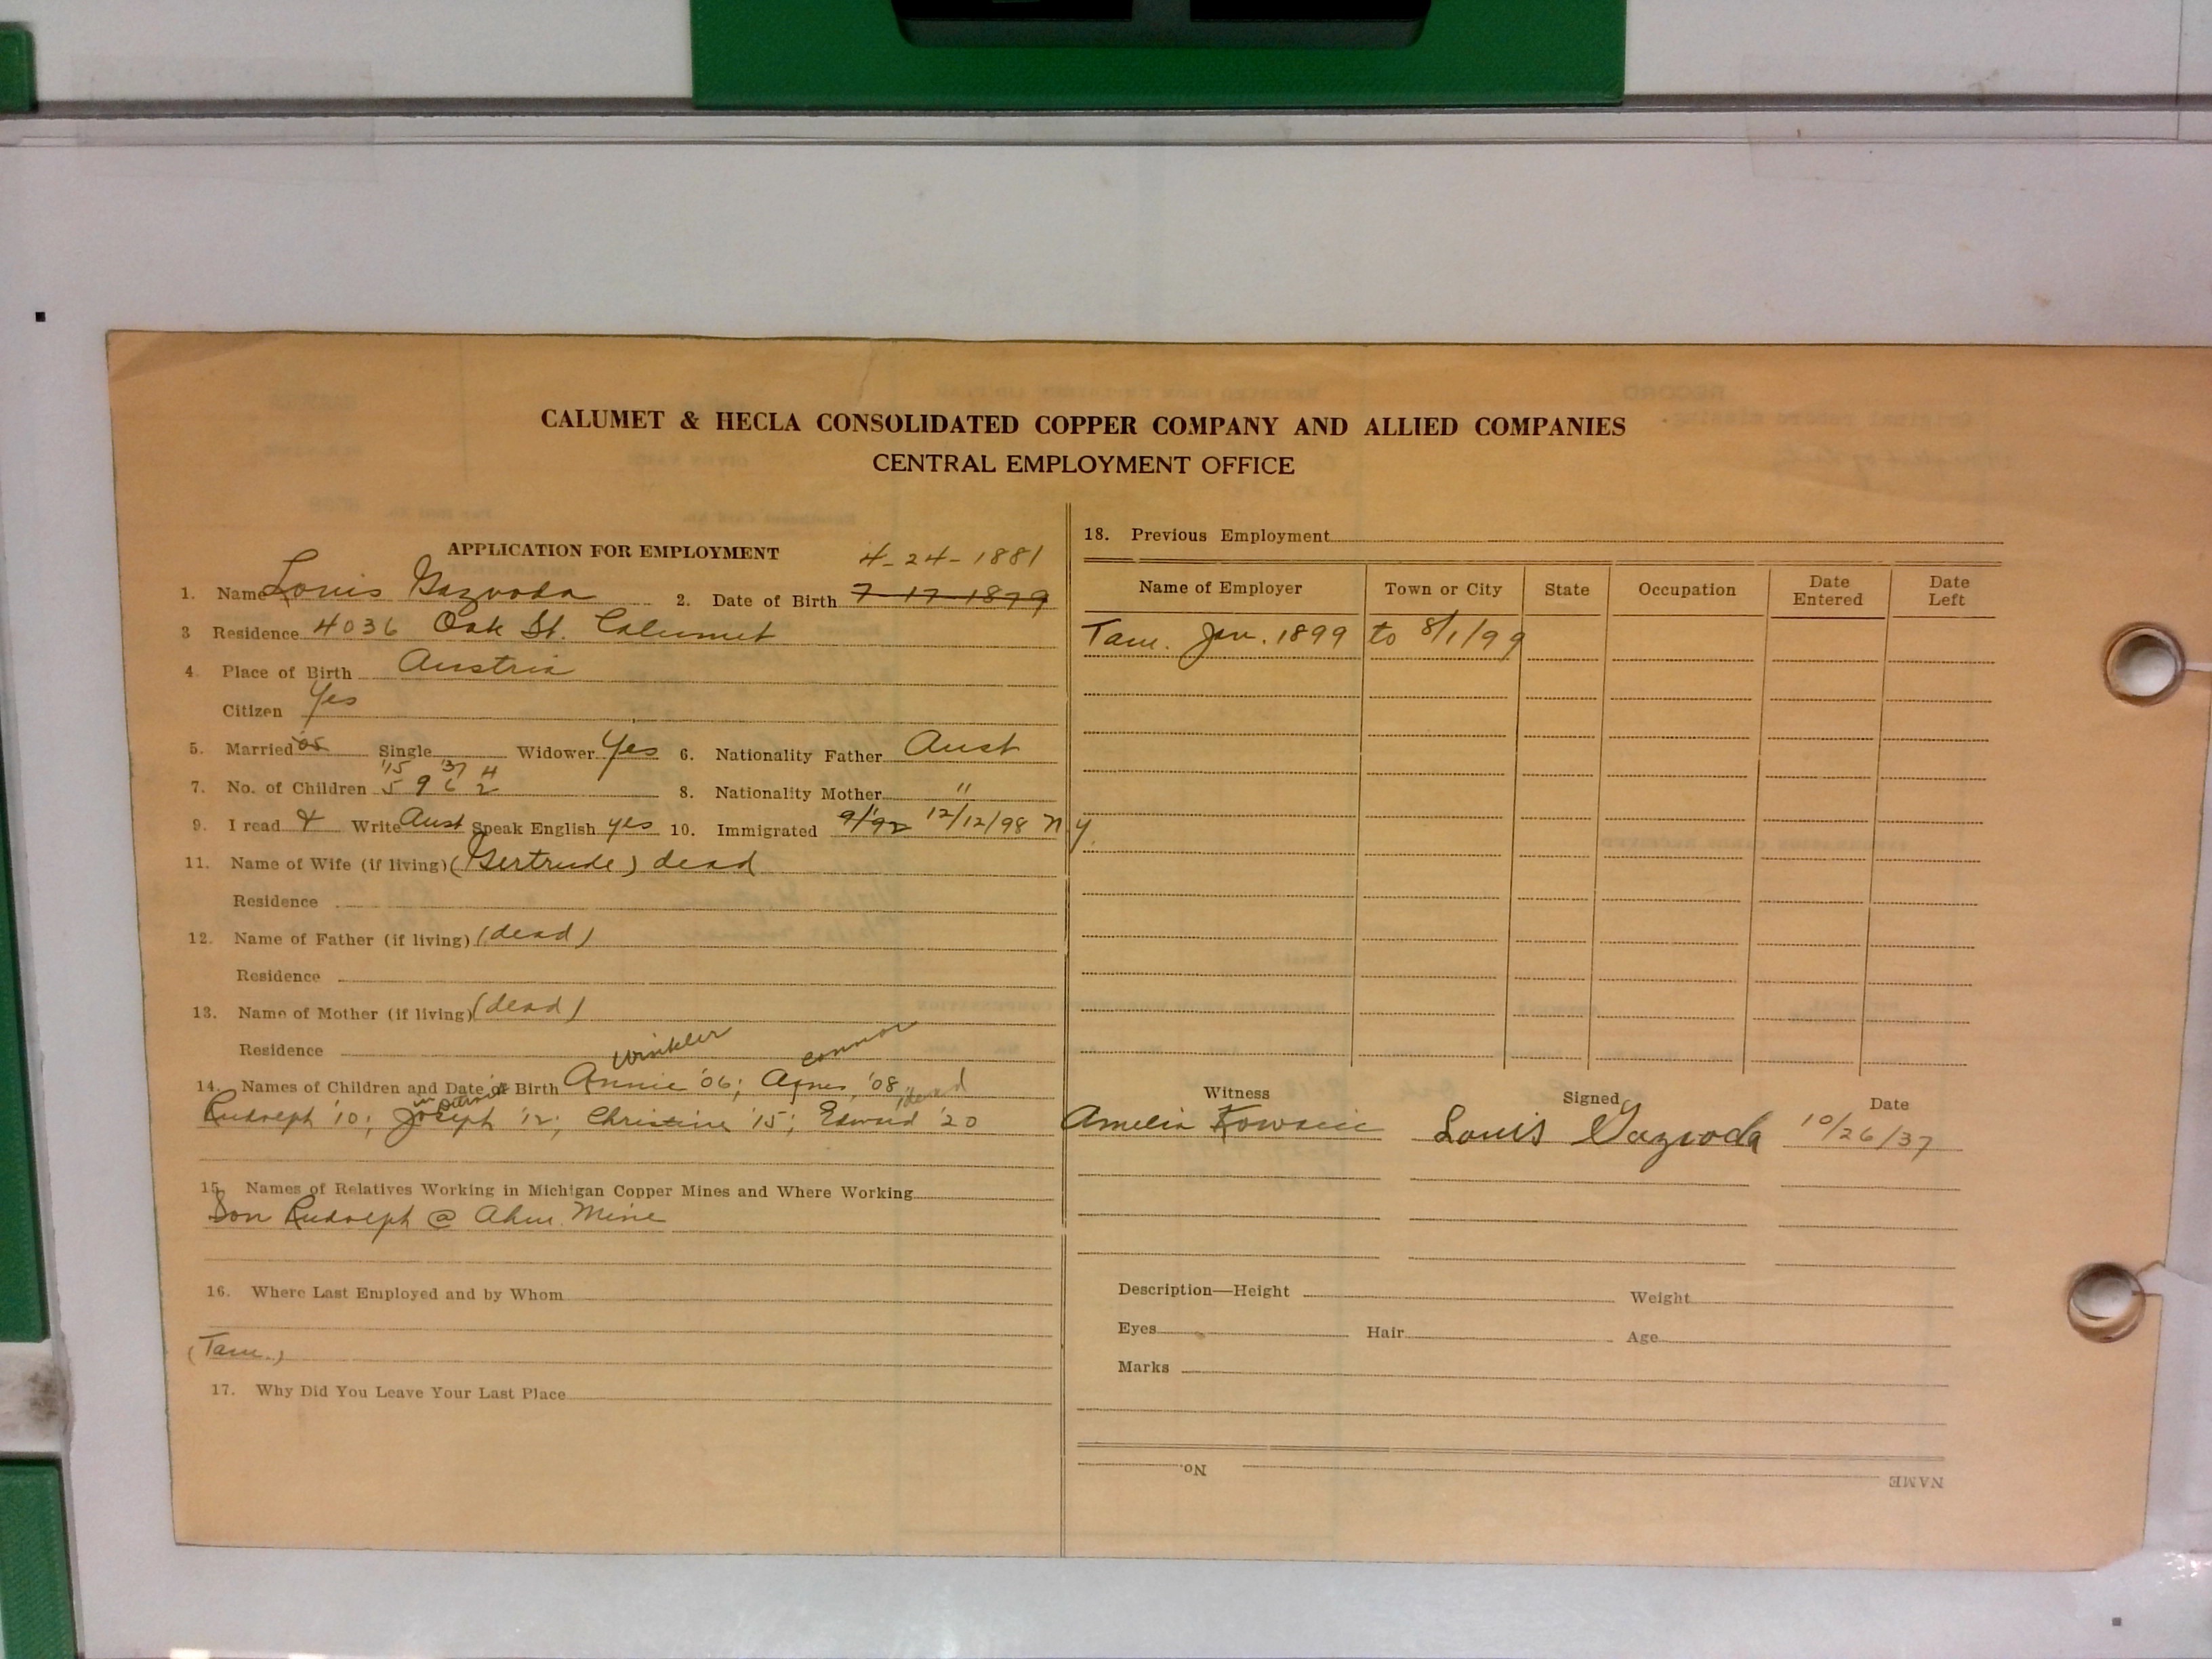 CALUMET & HECLA CONSOLIDATED COPPER COMPANY AND ALLIED COMPANIES
CENTRAL EMPLOYMENT OFFICE
APPLICATION FOR EMPLOYMENT
4-24-1881
1. Name Louis Gazvoda 2. Date of Birth 7-17-1879
3 Residence 4036 Oak St. Calumet
4. Place of Birth Austria
Citizen Yes
5. Married Single Widower Yes 6. Nationality Father Aust
'15 '37 4
7. No. of Children 5 9 6 2 8. Nationality Mother "
9. I read & Write Aust Speak English yes 10. Immigrated 9/'92 12/12/98 N.Y.
11. Name of Wife (if living) (Gertrude) dead
Residence
12. Name of Father (if living) (dead)
Residence
13. Name of Mother (if living) (dead)
Residence
Winkler Connor
14. Names of Children and Date of Birth Annie '06; Agnes, '08,
in Detroit dead
Rudolph '10; Joseph '12; Christine '15; Edward '20
15. Names of Relatives Working in Michigan Copper Mines and Where Working
Son Rudolph @ Ahm. Mine
16. Where Last Employed and by Whom
(Tam.)
17. Why Did You Leave Your Last Place
18. Previous Employment
Name of Employer Town or City State Occupation Date Entered Date Left
Tam. Jan. 1899 to 8/1/99
Witness Signed Date
Amelia Louis Gazvoda 10/26/37
Description—Height Weight
Eyes Hair Age
Marks
No. NAME